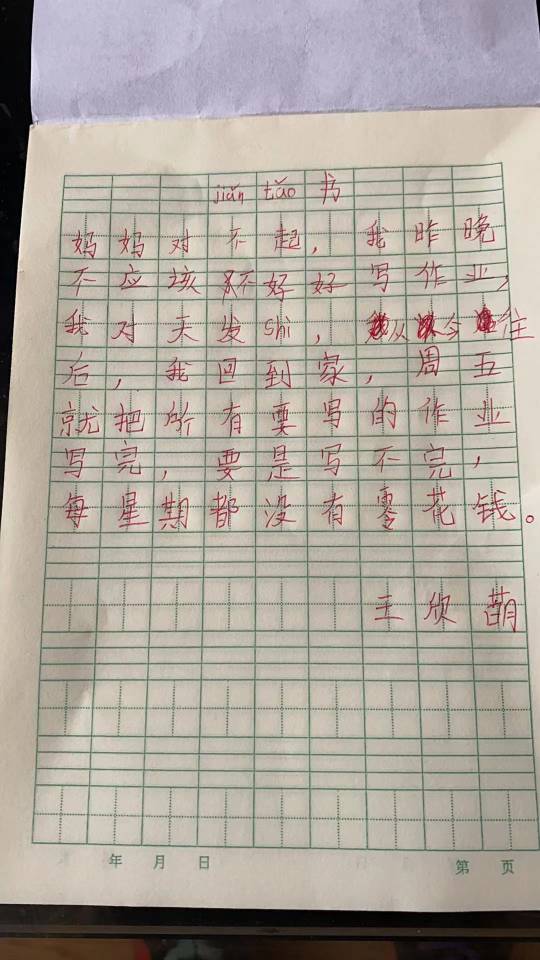 jiǎn tǎo 书
妈妈对不起，我昨晚
不应该不好好写作业，
我对天发shì，从今往
后，我回到家，周五
就把所有要写的作业
写完，要是写不完，
每星期都没有零花钱。
王欣
年 月 日 第 页